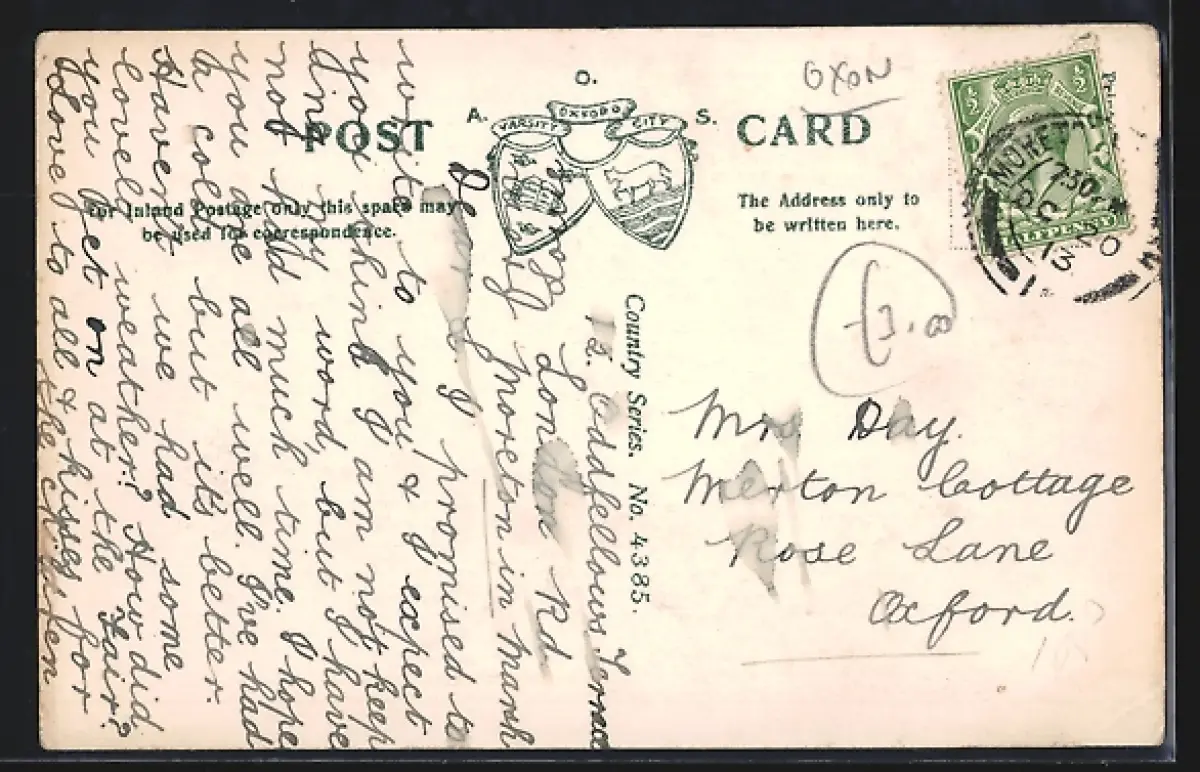 OXON
O.
A. S.
OXFORD
VARSITY CITY
POST CARD
For Inland Postage only this space may
be used for correspondence.
The Address only to
be written here.
½ ½
HALFPENNY
MORET
7.30
OC
13
£3.00
Country Series. No. 4385.
Mrs Day.
Merton Cottage
Rose Lane
Oxford.
Oddfellows Terrace
London Rd
Moreton in Marsh
Dear I promised to
write to you & I expect
you think I am not keep
ing my word, but I have
not had much time. I hope
you are all well. I've had
a cold but it's better.
Haven't we had some
lovely weather? How did
you get on at the Fair?
Love to all & kisses for
the children